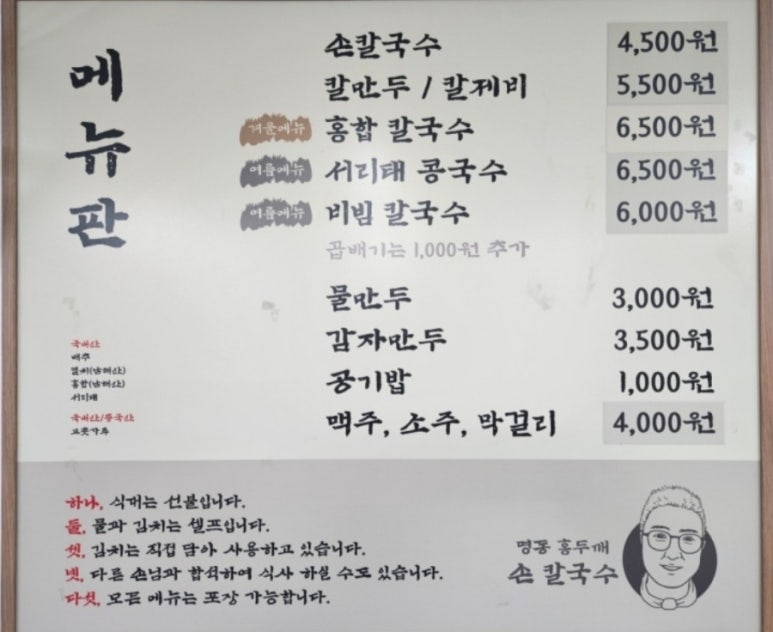 메뉴판
손칼국수 4,500원
칼만두 / 칼제비 5,500원
겨울메뉴 홍합 칼국수 6,500원
여름메뉴 서리태 콩국수 6,500원
여름메뉴 비빔 칼국수 6,000원
곱배기는 1,000원 추가
물만두 3,000원
감자만두 3,500원
공기밥 1,000원
맥주, 소주, 막걸리 4,000원
국내산
배추
멸치(남해산)
홍합(남해산)
서리태
국내산/중국산
고춧가루
하나, 식대는 선불입니다.
둘, 물과 김치는 셀프입니다.
셋, 김치는 직접 담아 사용하고 있습니다.
넷, 다른 손님과 합석하여 식사 하실 수도 있습니다.
다섯, 모든 메뉴는 포장 가능합니다.
명동 홍두깨
손 칼국수